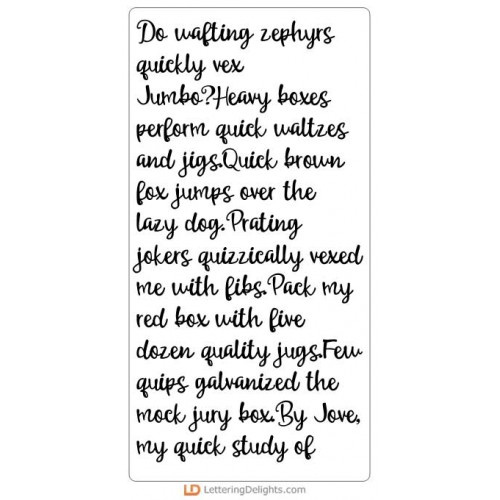 Do wafting zephyrs
quickly vex
Jumbo?Heavy boxes
perform quick waltzes
and jigs.Quick brown
fox jumps over the
lazy dog.Prating
jokers quizzically vexed
me with fibs.Pack my
red box with five
dozen quality jugs.Few
quips galvanized the
mock jury box.By Jove,
my quick study of
LD LetteringDelights.com